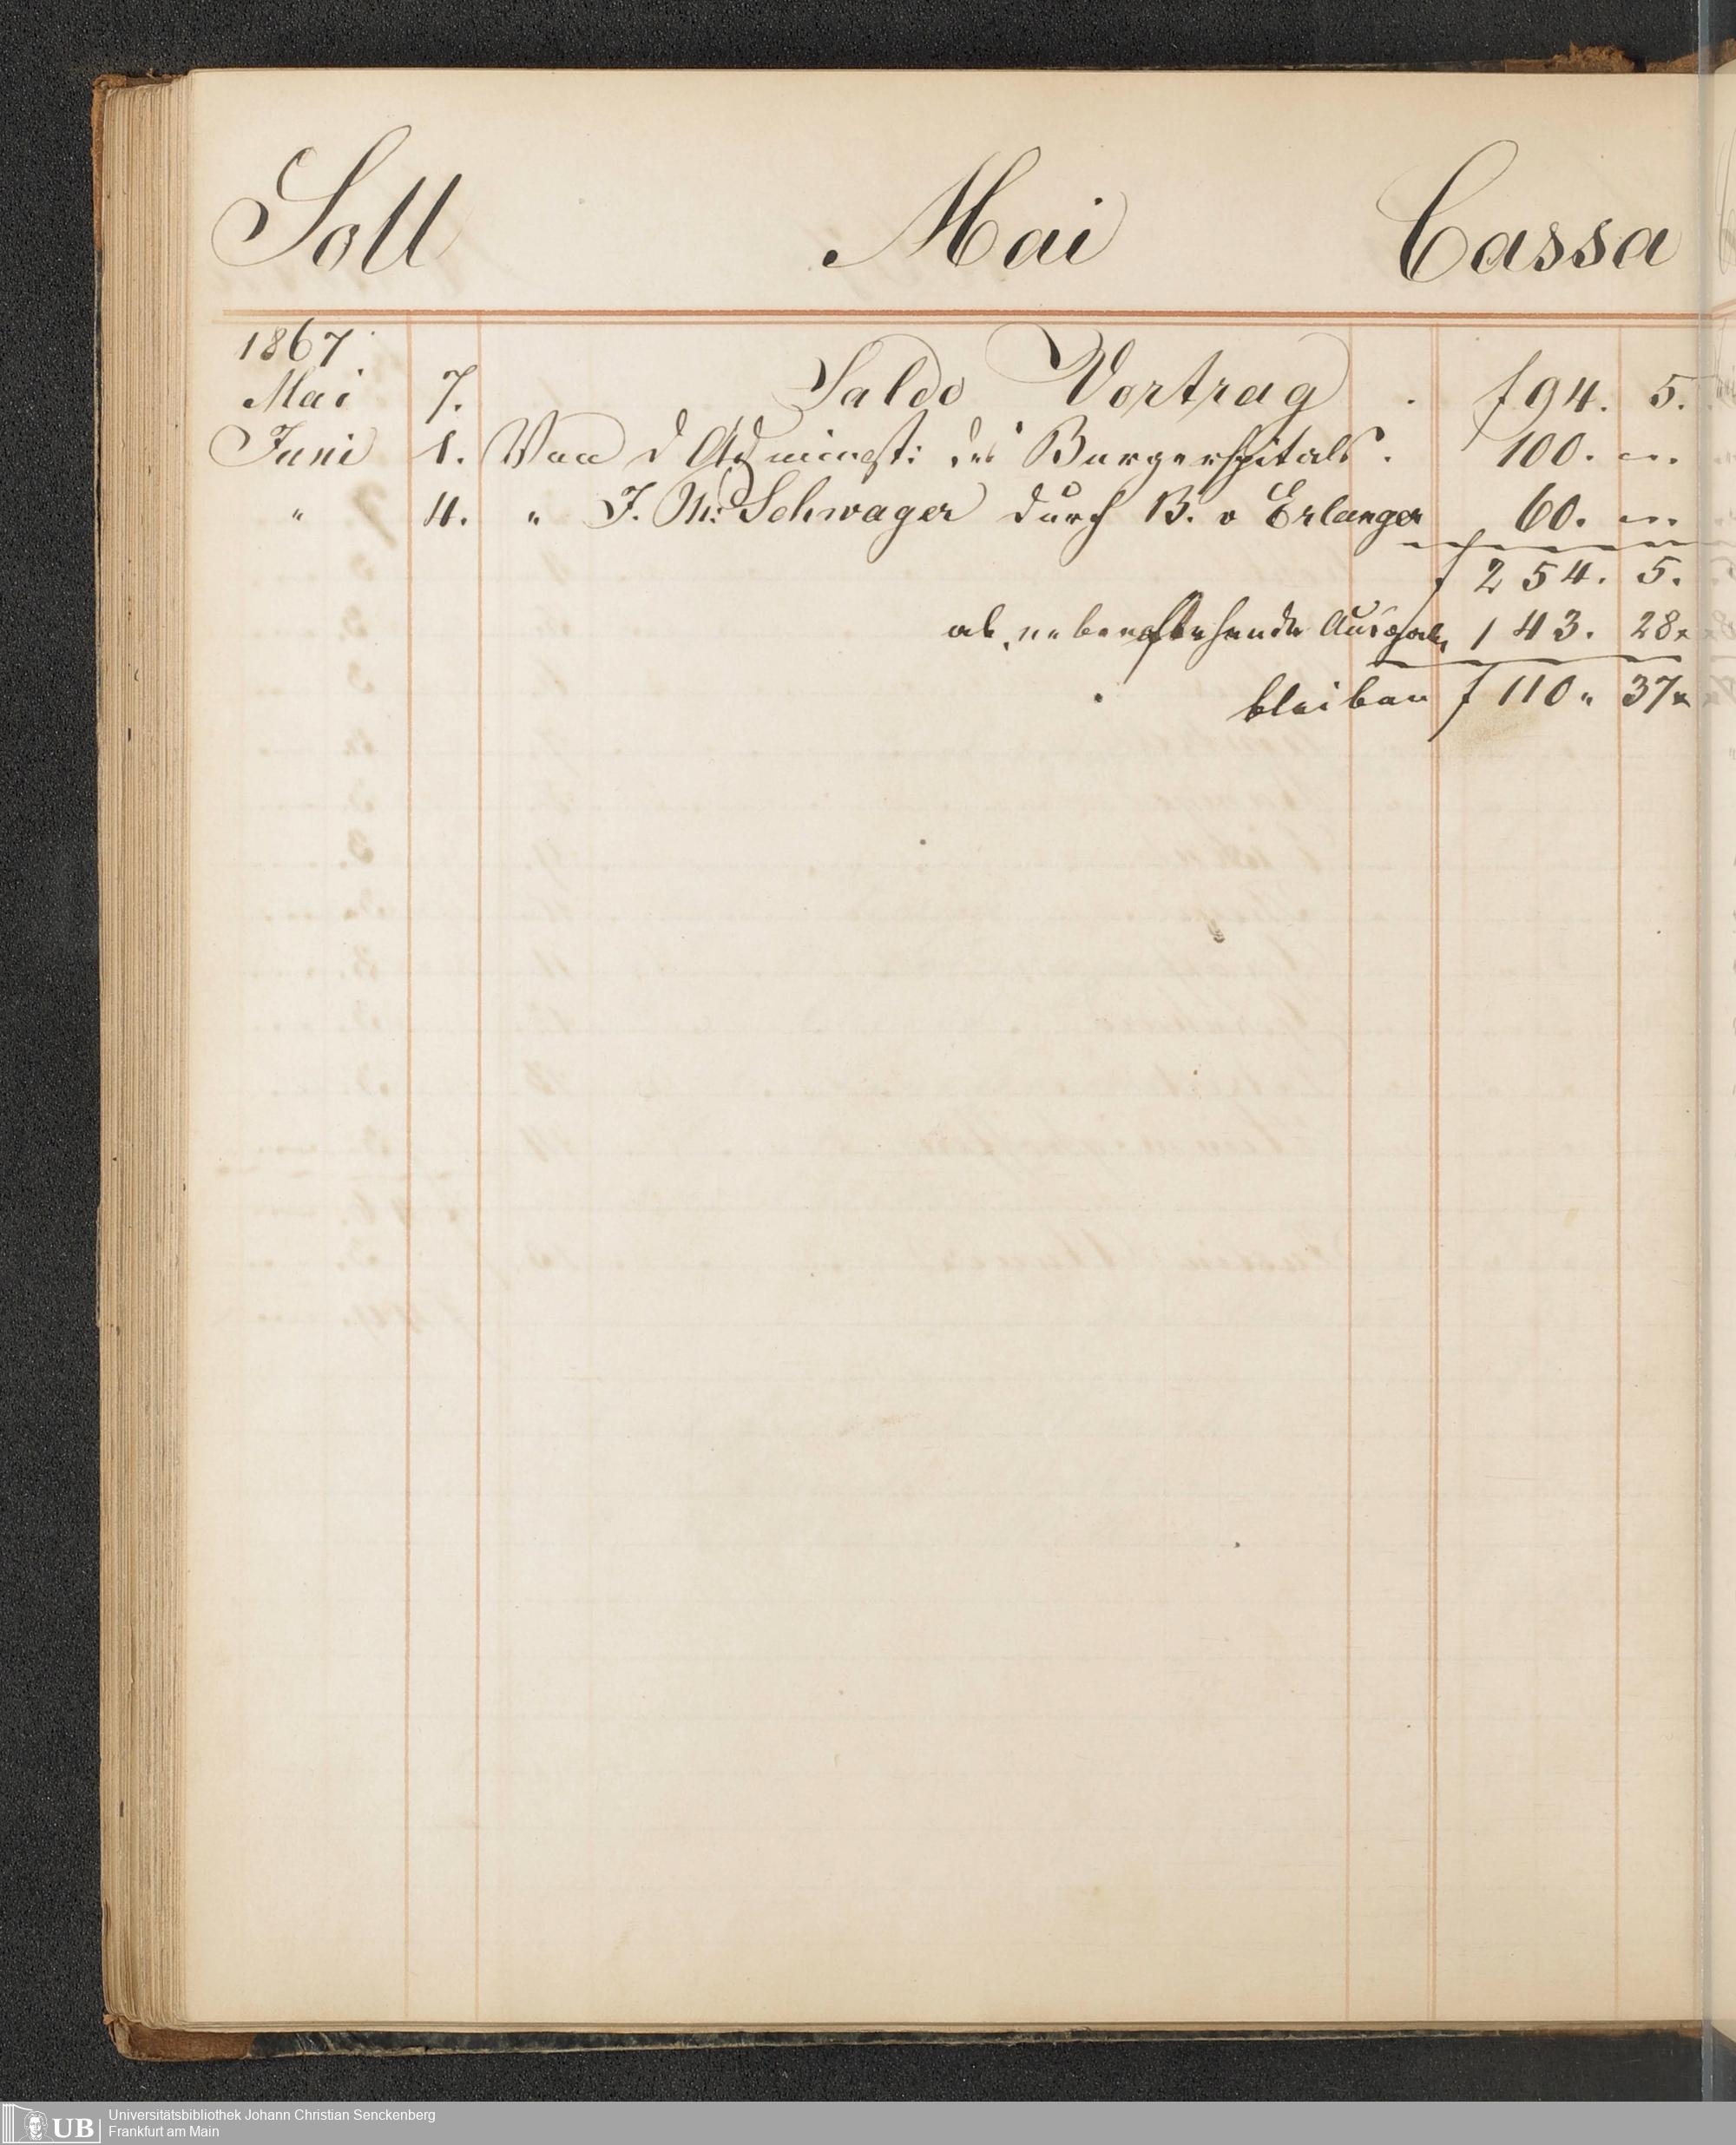 Soll Mai Cassa
1867
Mai 7. Saldo Vortrag . f 94. 5.
Juni 1. Von d Administ: des Burgerspitals. 100. —.
" 4. " J. M: Schwager durch B. v Erlanger 60. —.
f 254. 5.
ab, nebenstehende Ausgab. 143. 28x
bleiben f 110. 37x
UB Universitätsbibliothek Johann Christian Senckenberg
Frankfurt am Main